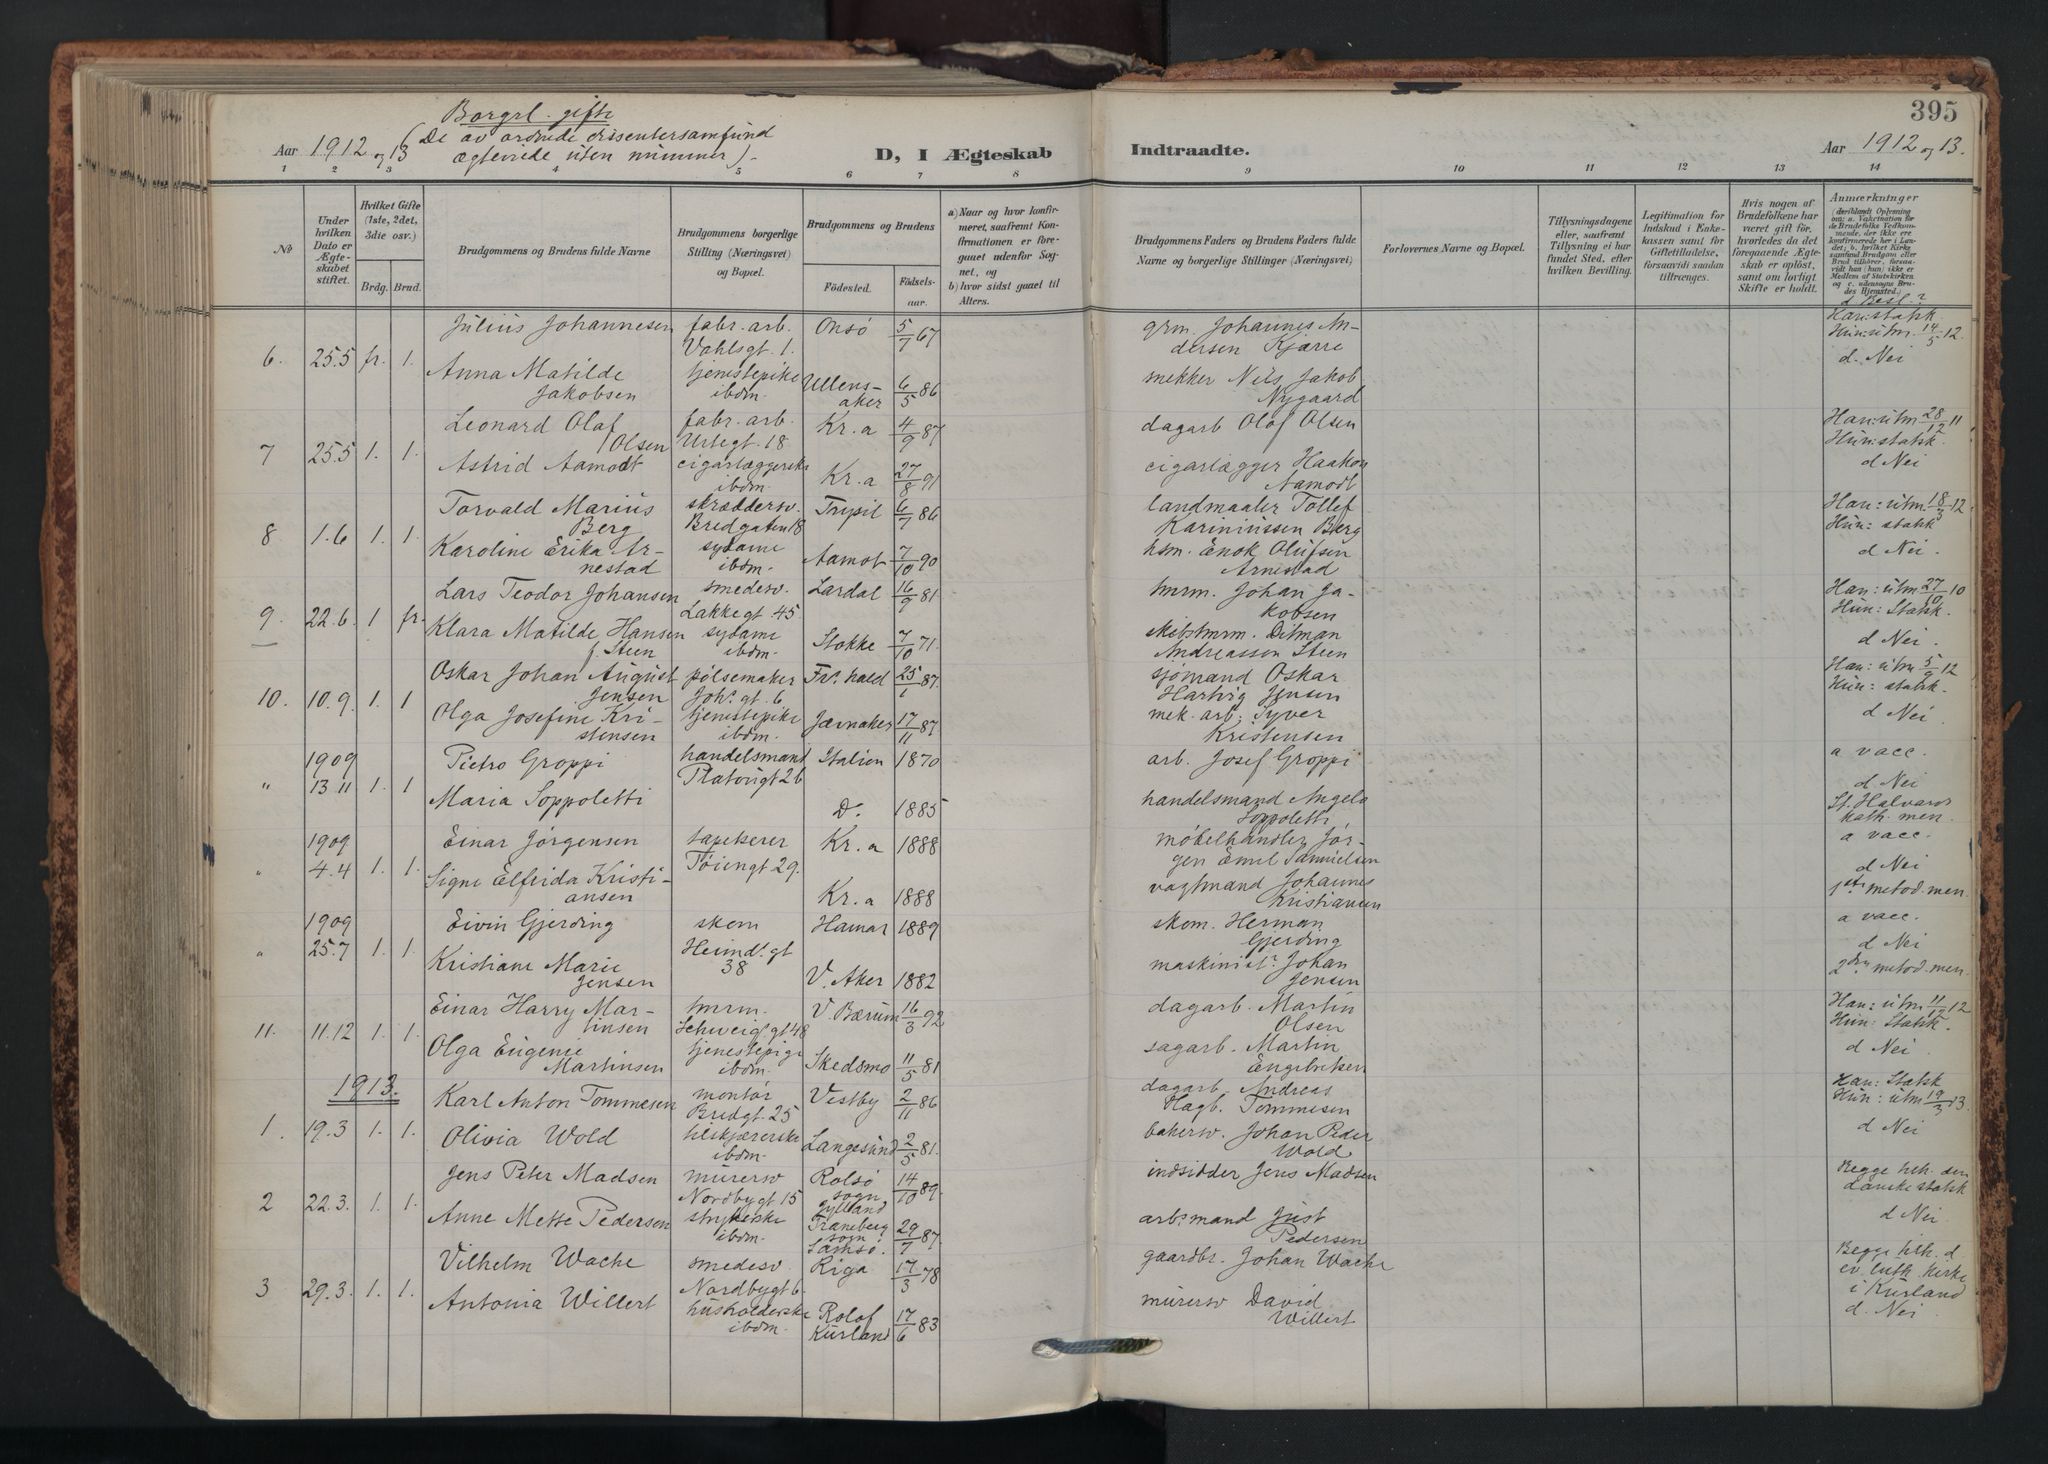 395
Borgrl. gifte
Aar 1912 og 13 (De av ordnede dissentersamfund
ægteviede uten nummer).
D, I Ægteskab Indtraadte.
Aar 1912 og 13.
1 2 3 4 5 6 7 8 9 10 11 12 13 14
No
Under hvilken Dato er Ægteskabet stiftet.
Hvilket Gifte (1ste, 2det, 3die osv.)
Brdg. Brud.
Brudgommens og Brudens fulde Navne
Brudgommens borgerlige Stilling (Næringsvei) og Bopæl.
Brudgommens og Brudens
Födested. Födselsaar.
a) Naar og hvor konfirmeret, saafremt Konfirmationen er foregaaet udenfor Sognet, og
b) hvor sidst gaaet til Alters.
Brudgommens Faders og Brudens Faders fulde Navne og borgerlige Stillinger (Næringsvei)
Forlovernes Navne og Bopæl.
Tillysningsdagene eller, saafremt Tillysning ei har fundet Sted, efter hvilken Bevilling.
Legitimation for Indskud i Enkekassen samt for Giftetilladelse, forsaavidt saadan tiltrænges.
Hvis nogen af Brudefolkene har været gift før, hvorledes da det foregaaende Ægteskab er oplöst, samt om lovligt Skifte er holdt.
Anmærkninger
(deriblandt Oplysning om: a. Vakcination for de Brudefolks Vedkommende, der ikke ere konfirmerede her i Landet; b. hvilket Kirkesamfund Brudgom eller Brud tilhörer, forsaavidt hun (han) ikke er Medlem af Statskirken og c. udensogns Brudes Hjemsted.)
d Besl.?
Julius Johannesen fabr. arb. Onsö 5/7 67 grm. Johannes An- Han: statsk.
6. 25.5 fr. 1. Vahlsgt. 1. dersen Kjærre Hun: utm. 14/5 12.
Anna Matilde tjenestepike Ullens- 6/5 86 snekker Nils Jakob d. Nei
Jakobsen ibdm. aker Nygaard
Leonard Olaf fabr. arb. Kr.a 4/9 87 dagarb Olof Olsen Han: utm 28/12 11
7 25.5 1. 1. Olsen Urtegt. 18 Hun: statsk.
Astrid Aamodt cigarlæggerske Kr.a 27/8 91 cigarlægger Haakon d Nei
ibdm. Aamodt
Torvald Marius skræddersv. Trysil 6/7 86 landmaaler Tollef Han: utm. 18/3 12
8 1.6 1. 1. Berg Bredgaten 18 Kariniussen Berg Hun: statsk
Karoline Erika Ar- sydame Aamot 7/10 90 hsm. Enok Olufsen d Nei.
nestad ibdm. Arnestad
Lars Teodor Johansen smedesv. Lardal 16/9 81 tmrm. Johan Ja- Han: utm 27/10 10
9 22.6. 1 fr. Lakkegt. 45. kobsen Hun: Statsk.
Klara Matilde Hansen sydame Stokke 7/10 71. skibstmrm. Ditman d Nei.
f. Steen ibdm. Andreassen Steen
Oskar Johan August pølsemaker Fr.hald 25/1 87. sjömand Oskar Han: utm 5/9 12
10. 10.9. 1. 1 Jensen Joh.s gt. 6 Hartvig Jensen Hun: statsk.
Olga Josefine Kri- tjenestepike Jævnaker 17/11 87 mek. arb. Syver d Nei
stensen ibdm. Kristensen
1909 Pietro Groppi handelsmand Italien 1870 arb. Josef Groppi a vacc.
" 13.11 1. 1 Platousgt 26 d Nei
Maria Soppoletti D.o 1885 handelsmand Angelo St. Halvards
Soppoletti kath. men.
1909 Einar Jörgensen tapetserer Kr.a 1888 møbelhandler Jör- a vacc.
" 4.4 1. 1. Töiengt 29. gen Emil Samuelsen d Nei
Signe Elfrida Kristi- Kr.a 1888 vagtmand Johannes 1st. metod. men.
ansen Kristiansen
1909 Eivin Gjerding skom Hamar 1889 skom. Herman a vacc.
" 25.7 1. 1. Heimd.gt 38 Gjerding d Nei
Kristiane Marie V. Aker 1882 maskinist Johan 2den metod. men.
Jensen Jensen
Einar Harry Mar- tmrm. V. Bærum 16/3 92 dagarb. Martin Han: utm 11/12 12
11. 11.12 1. 1. tinsen Schweig.gt 48 Olsen Hun: Statsk.
Olga Eugenie tjenestepige Skedsmo 11/5 81 sagarb. Martin d Nei.
Martinsen ibdm. Engebretsen
1913.
Karl Anton Tommesen montör Vestby 2/11 86 dagarb. Andreas Han: Statsk
1. 19.3 1. 1. Bredgt. 25 Hagb. Tommesen Hun: utm 19/3 13.
Olivia Wold tilskjærerske Langesund 2/5 81. bakersv. Johan Peder d Nei
ibdm. Wold
Jens Peter Madsen murersv Rolsö 14/10 89. indsidder Jens Madsen Begge tilh. den
2 22.3. 1. 1. Nordbygt 15 sogn Jylland danske statsk
Anne Mette Pedersen strykerske Traneberg 29/7 87. arb.smand Just d Nei.
ibdm. sogn Samsö. Pedersen
Vilhelm Wache smedesv. Riga 17/3 78 gaardbr. Johan Wache Begge tilh. d
3 29.3. 1. 1. Nordbygt 6. ev. luth. kirke
Antonia Willert husholderske Rolof 17/6 83 murersv David i Kurland
ibdm. Kurland Willert d. Nei